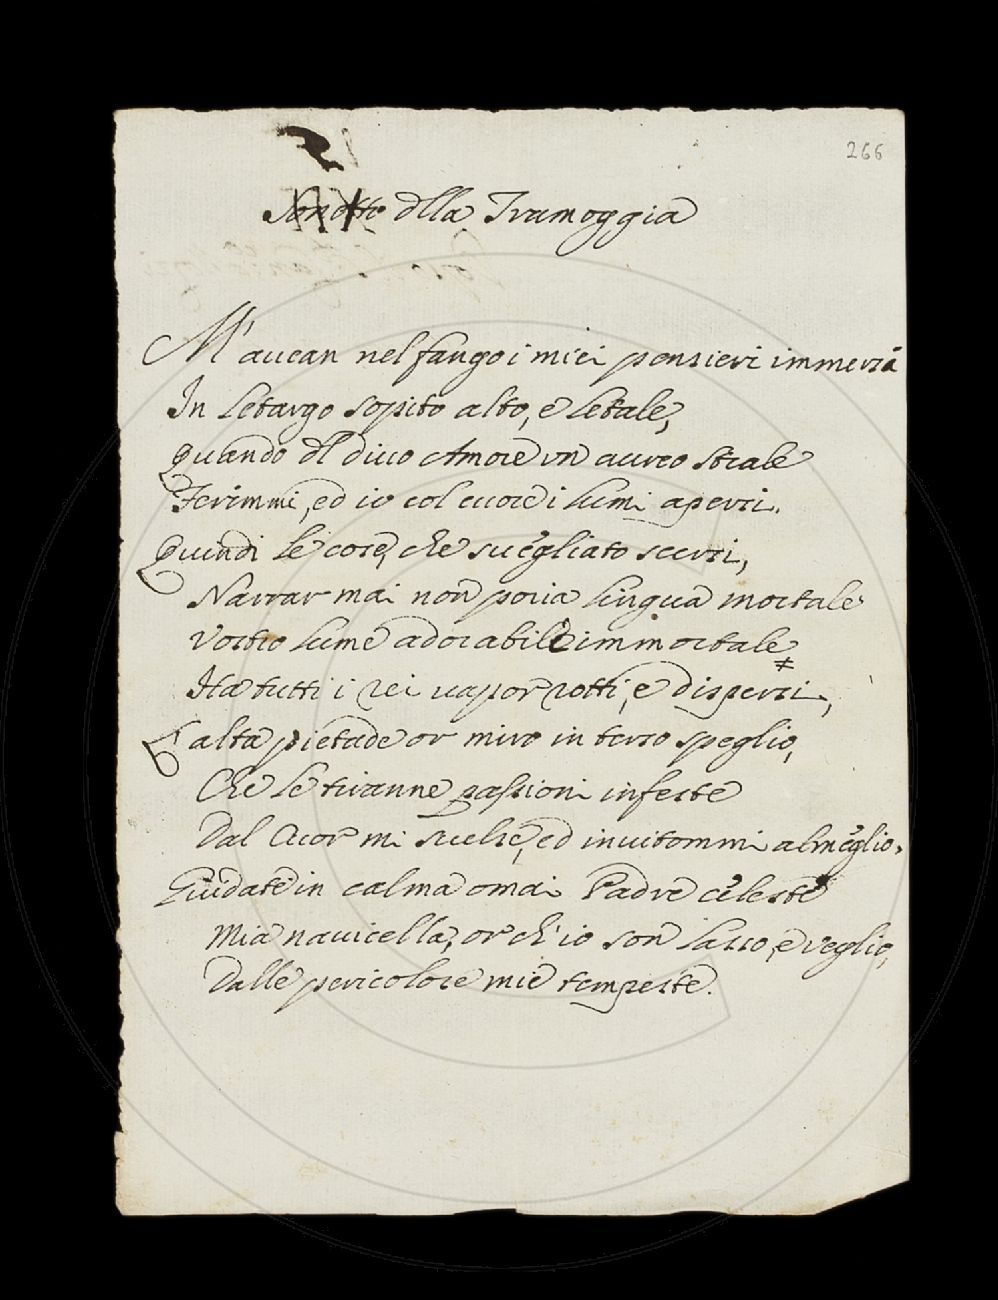 266
Sonetto dlla Tramoggia
M'auean nel fango i miei pensieri immersi
In letargo sopito alto, e letale,
Quando dl diuo Amore un aureo strale
Ferimmi, ed io col cuore i lumi apersi.
Quindi le cose, che suegliato scersi,
Narrar mai non poria lingua mortale
Vostro lume adorabile immortale
Ha tutti i rei uapor rotti, e dispersi,
L'alta pietade or miro in terso speglio,
Che le tiranne passioni infeste
Dal cuor mi suelse, ed inuitommi al meglio.
Guidate in calma omai Padre celeste
Mia nauicella, or ch'io son lasso, e veglio,
Dalle pericolose mie tempeste.